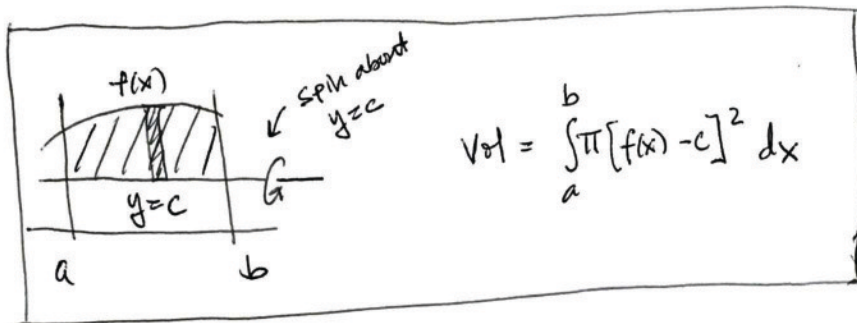 f(x)
spin about
y=c
y=c
a
b
Vol = ∫ₐᵇ π[f(x) - c]² dx